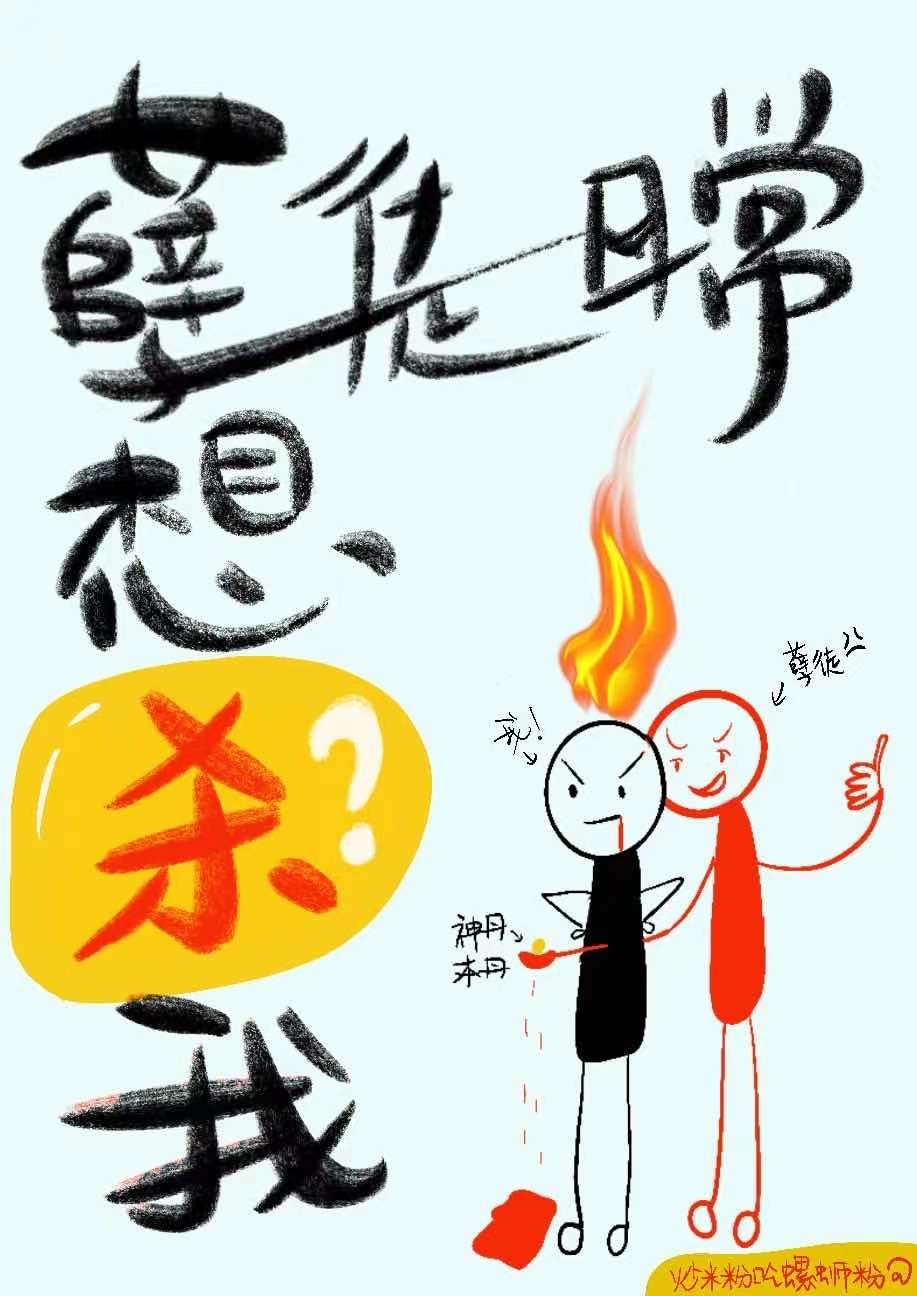 孽徒日常
想
杀?
我
孽徒
我!
神丹
本丹
炒米粉吃螺蛳粉